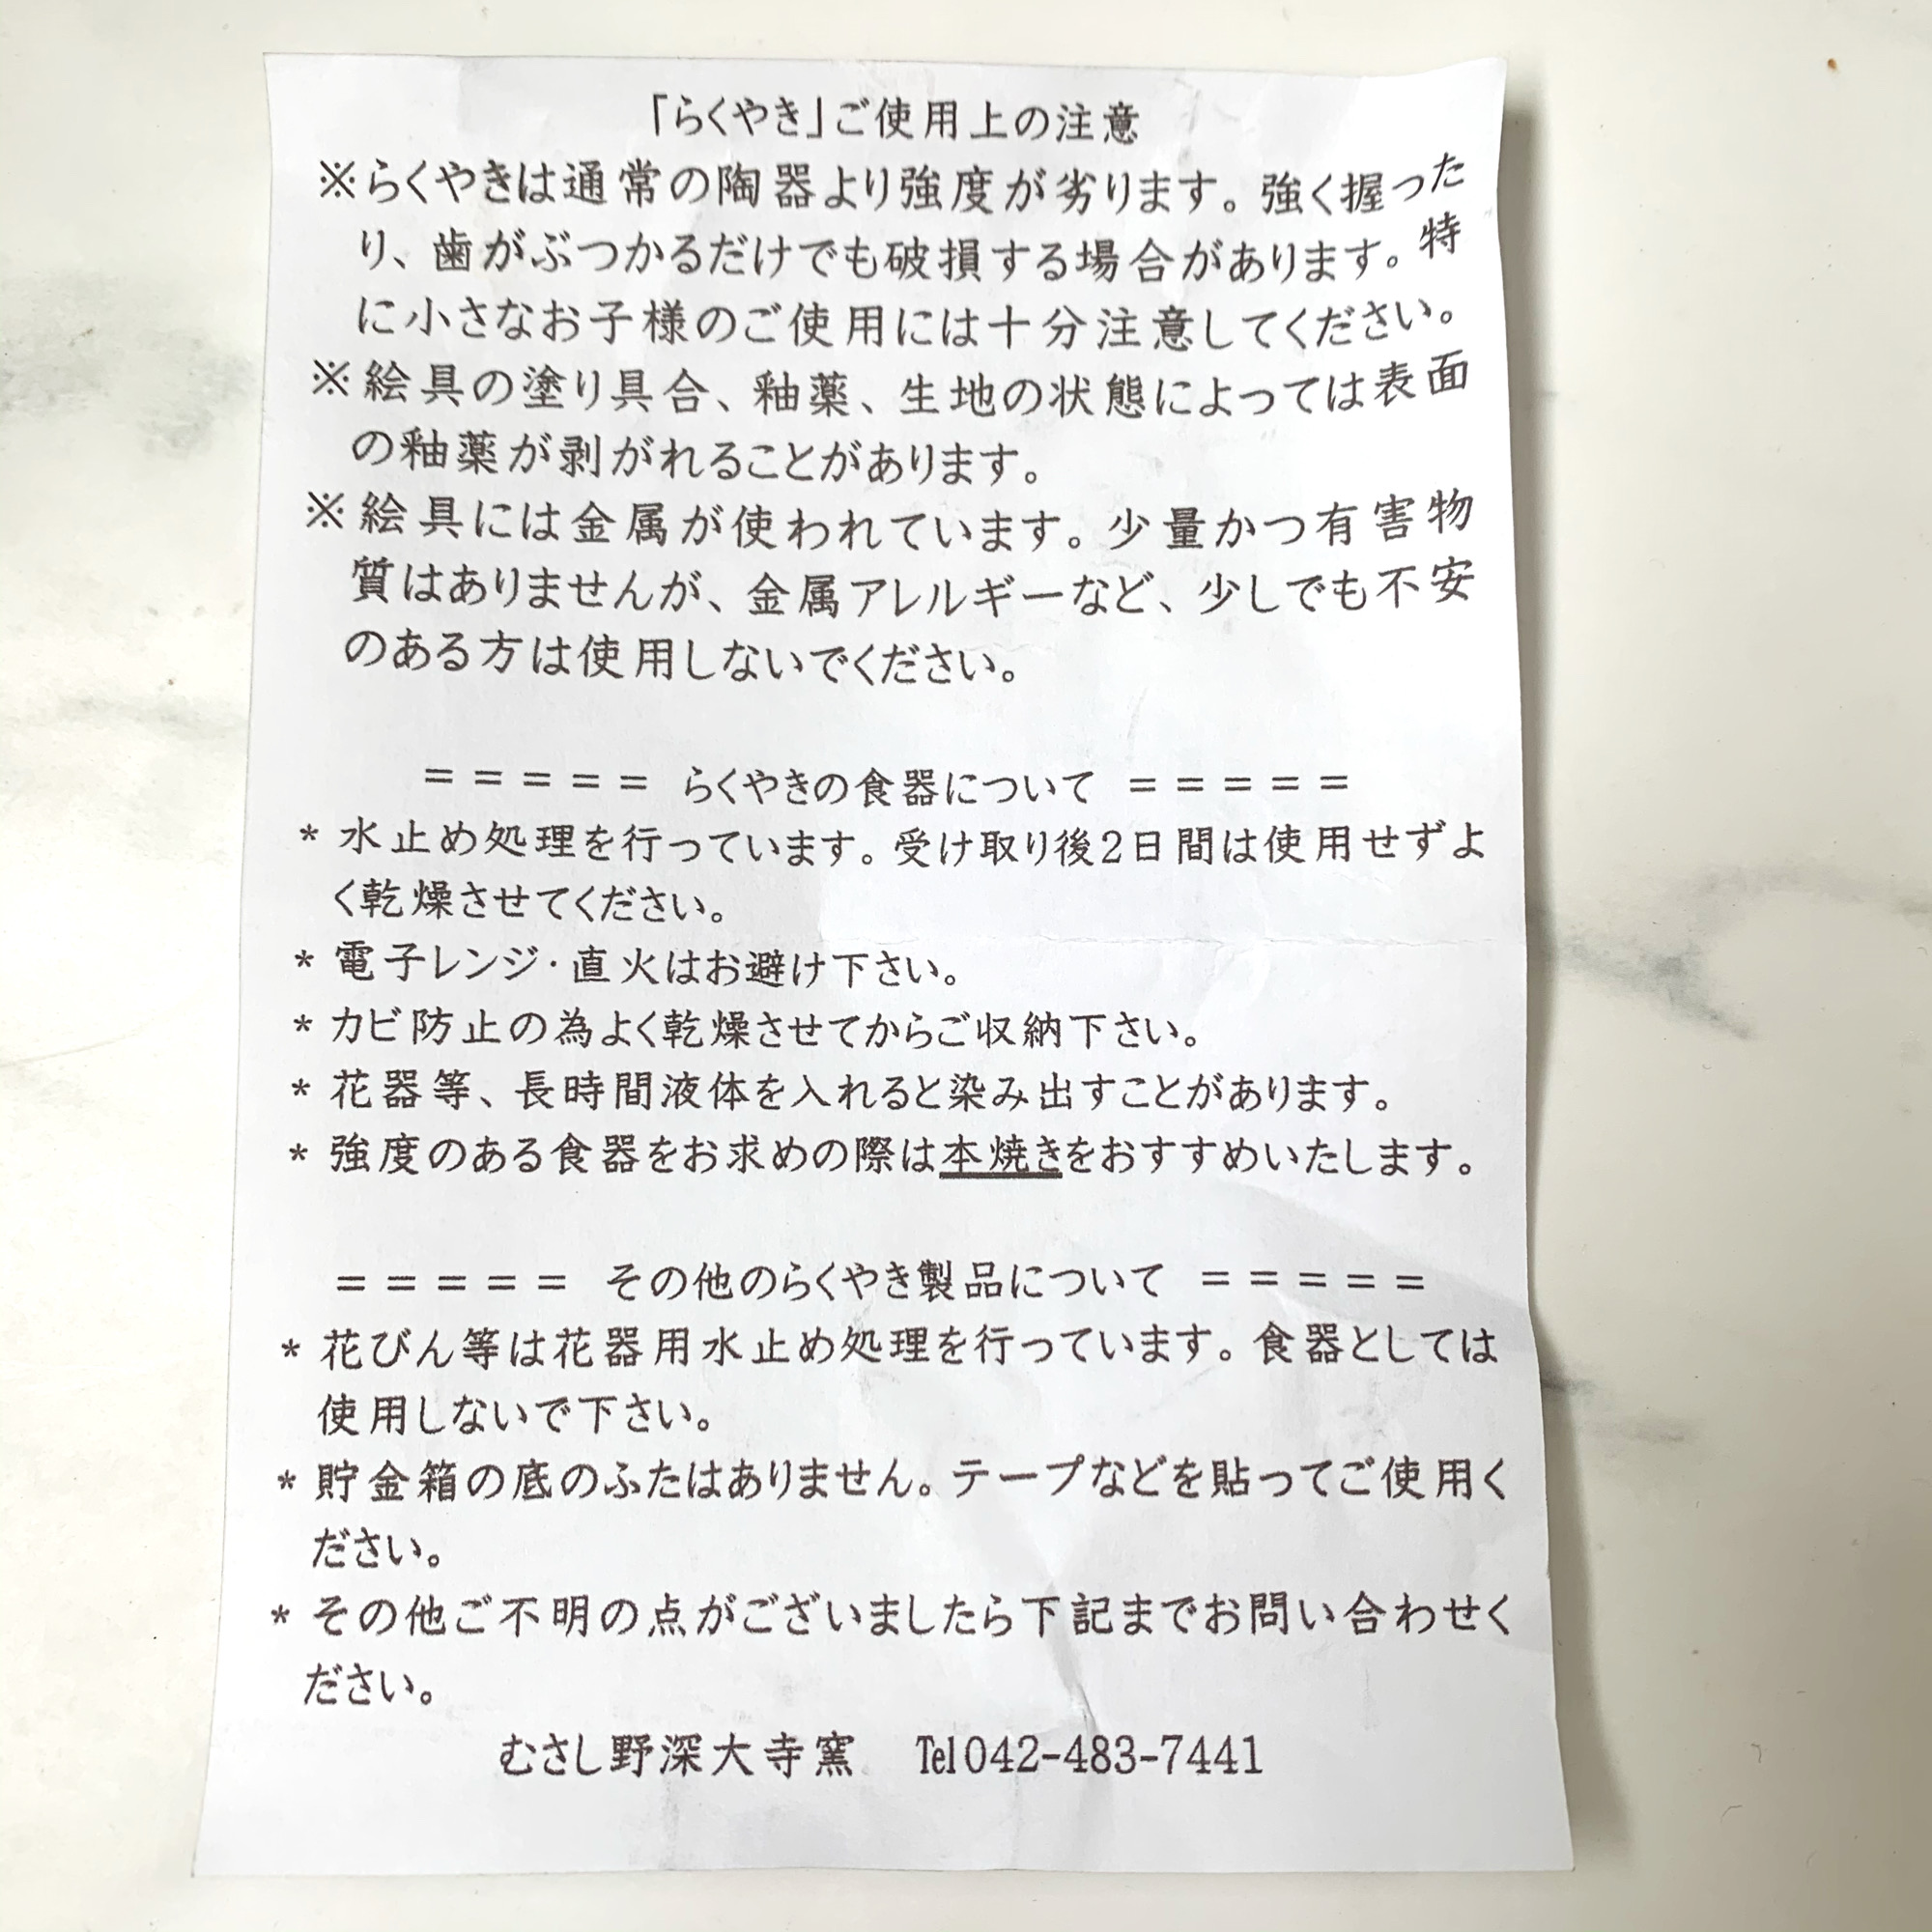 「らくやき」ご使用上の注意
※らくやきは通常の陶器より強度が劣ります。強く握った
り、歯がぶつかるだけでも破損する場合があります。特
に小さなお子様のご使用には十分注意してください。
※絵具の塗り具合、釉薬、生地の状態によっては表面
の釉薬が剥がれることがあります。
※絵具には金属が使われています。少量かつ有害物
質はありませんが、金属アレルギーなど、少しでも不安
のある方は使用しないでください。
＝＝＝＝＝ らくやきの食器について ＝＝＝＝＝
* 水止め処理を行っています。受け取り後2日間は使用せずよ
く乾燥させてください。
* 電子レンジ・直火はお避け下さい。
* カビ防止の為よく乾燥させてからご収納下さい。
* 花器等、長時間液体を入れると染み出すことがあります。
* 強度のある食器をお求めの際は本焼きをおすすめいたします。
＝＝＝＝＝ その他のらくやき製品について ＝＝＝＝＝
* 花びん等は花器用水止め処理を行っています。食器としては
使用しないで下さい。
* 貯金箱の底のふたはありません。テープなどを貼ってご使用く
ださい。
* その他ご不明の点がございましたら下記までお問い合わせく
ださい。
むさし野深大寺窯 ℡042-483-7441